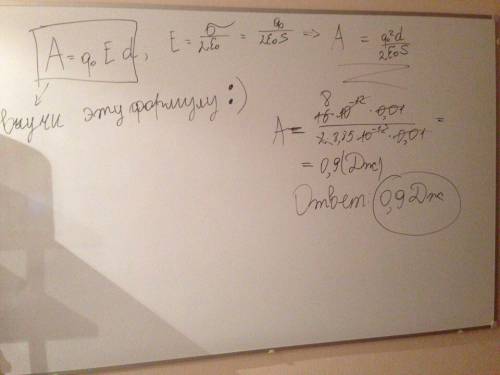 A = q₀ E d ; E = σ/2ε₀ = q₀/2ε₀S => A = q₀²d/2ε₀S
выучи эту формулу :)
A = 16·10⁻¹²·0,01 / 2·8,85·10⁻¹²·0,01 =
8
= 0,9 (Дж)
Ответ: 0,9 Дж